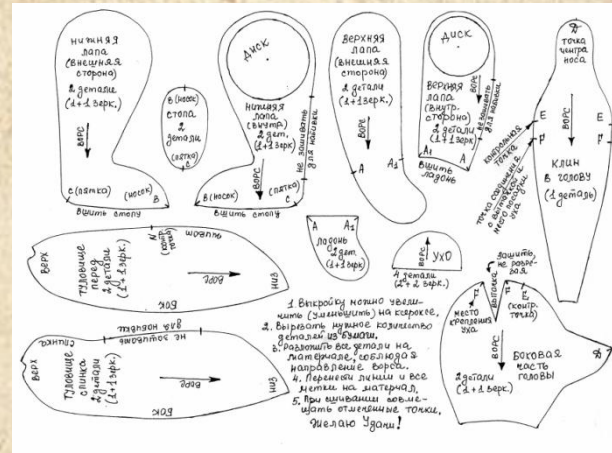 нижняя
лапа
(внешняя
сторона)
2 детали
(1+1 зерк.)
ВОРС
С (пятка)
(носок)
В
вшить стопу
В (носок)
стопа
2
детали
(пятка)
С
ДИСК
нижняя
лапа
(внутр.)
2 дет.
(1+1 зерк.)
ВОРС
не зашивать
для набивки
В (носок)
(пятка)
С
вшить стопу
Верхняя
лапа
(внешняя
сторона)
2 детали
(1+1 зерк.)
ВОРС
А
А1
ДИСК
Верхняя
лапа
(внутр.
сторона)
2 детали
(1+1 зерк.)
ВОРС
не зашивать
для набивки
А
А1
вшить
ладонь
D
точка
центра
носа
ВОРС
E
E
F
F
КЛИН
В ГОЛОВУ
(1 деталь)
контрольная
точка
точка соединения
с вытачкой и
место посадки
уха
ВЕРХ
туловище
перед
2 детали
(1+1 зерк.)
N (контр. точка)
живот
ворс
низ
БОК
А
А1
ладонь
2 дет.
(1+1 зерк.)
ВОРС
УХО
4 детали
(2+2 зерк.)
ВЕРХ
спинка
не зашивать
для набивки
туловище
спинка
2 детали
(1+1 зерк.)
ворс
низ
БОК
1. Выкройку можно увели-
чить (уменьшить) на ксероксе.
2. Вырезать нужное количество
деталей из бумаги.
3. Разложить все детали на
материале, соблюдая
направление ворса.
4. Перенести линии и все
метки на материал.
5. При сшивании совме-
щать отмеченные точки.
Желаю Удачи!
зашить,
не разре-
зая
вытачка
F
F
E
(контр.
точка)
место
крепления
уха
ВОРС
D
Боковая
часть
головы
2 детали
(1+1 зерк.)